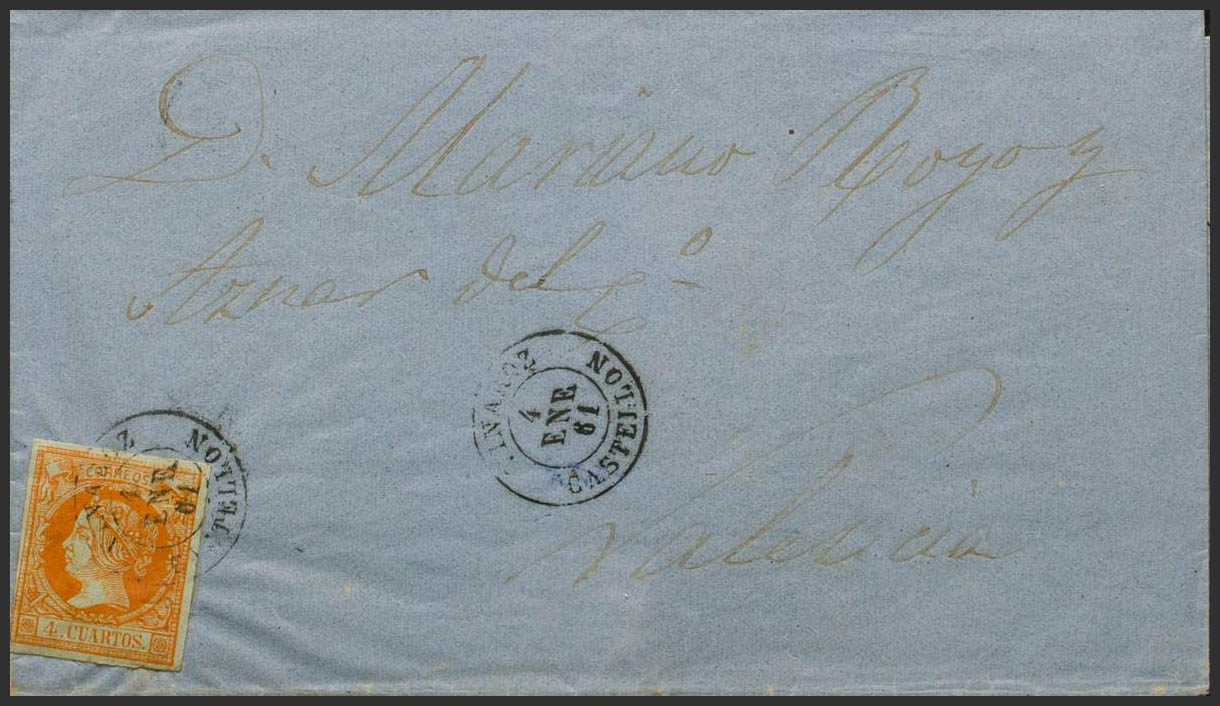 D. Mariano Royo y
Aznar del C.º
Valencia
VINAROZ
4
ENE
61
CASTELLON
CORREOS
4. CUARTOS.
ENE
61